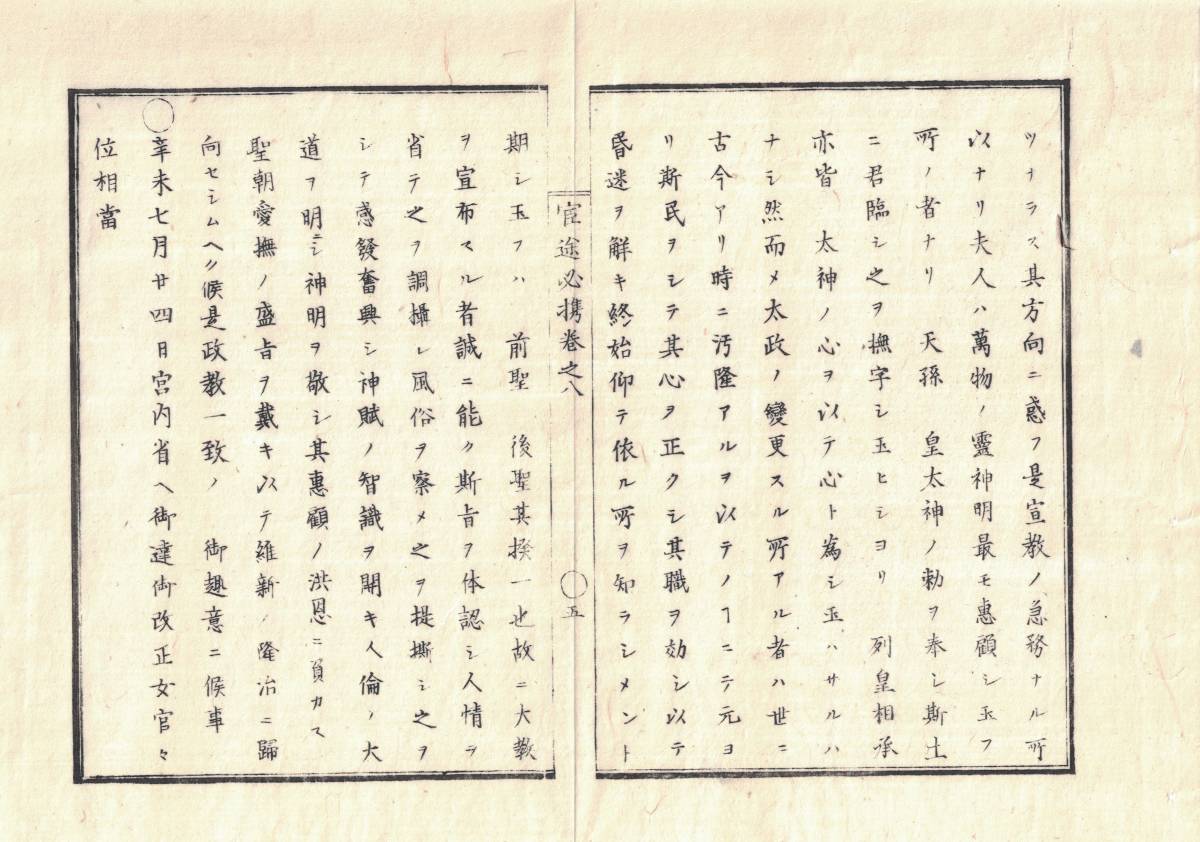 ツナラス其方向ニ惑フ是宣教ノ急務ナル所
以ナリ夫人ハ萬物ノ靈神明最モ惠顧シ玉フ
所ノ者ナリ　天孫　皇太神ノ勅ヲ奉シ斯土
ニ君臨シ之ヲ撫字シ玉ヒシヨリ　列皇相承
亦皆　太神ノ心ヲ以テ心ト為シ玉ハサルハ
ナシ然而メ太政ノ變更スル所アル者ハ世ニ
古今アリ時ニ汚隆アルヲ以テノヿニテ元ヨ
リ斯民ヲシテ其心ヲ正クシ其職ヲ効シ以テ
昏迷ヲ解キ終始仰テ依ル所ヲ知ラシメント
宦途必携巻之八
五
期シ玉フハ　前聖　後聖其揆一也故ニ大教
ヲ宣布スル者誠ニ能ク斯旨ヲ体認シ人情ヲ
省テ之ヲ調攝シ風俗ヲ察メ之ヲ提撕シ之ヲ
シテ感發奮興シ神賦ノ智識ヲ開キ人倫ノ大
道ヲ明ニシ神明ヲ敬シ其惠顧ノ洪恩ニ負カス
聖朝愛撫ノ盛旨ヲ戴キ以テ維新ノ隆治ニ歸
向セシムヘク候是政教一致ノ　御趣意ニ候事
〇辛未七月廿四日宮内省ヘ御達御改正女官々
位相當